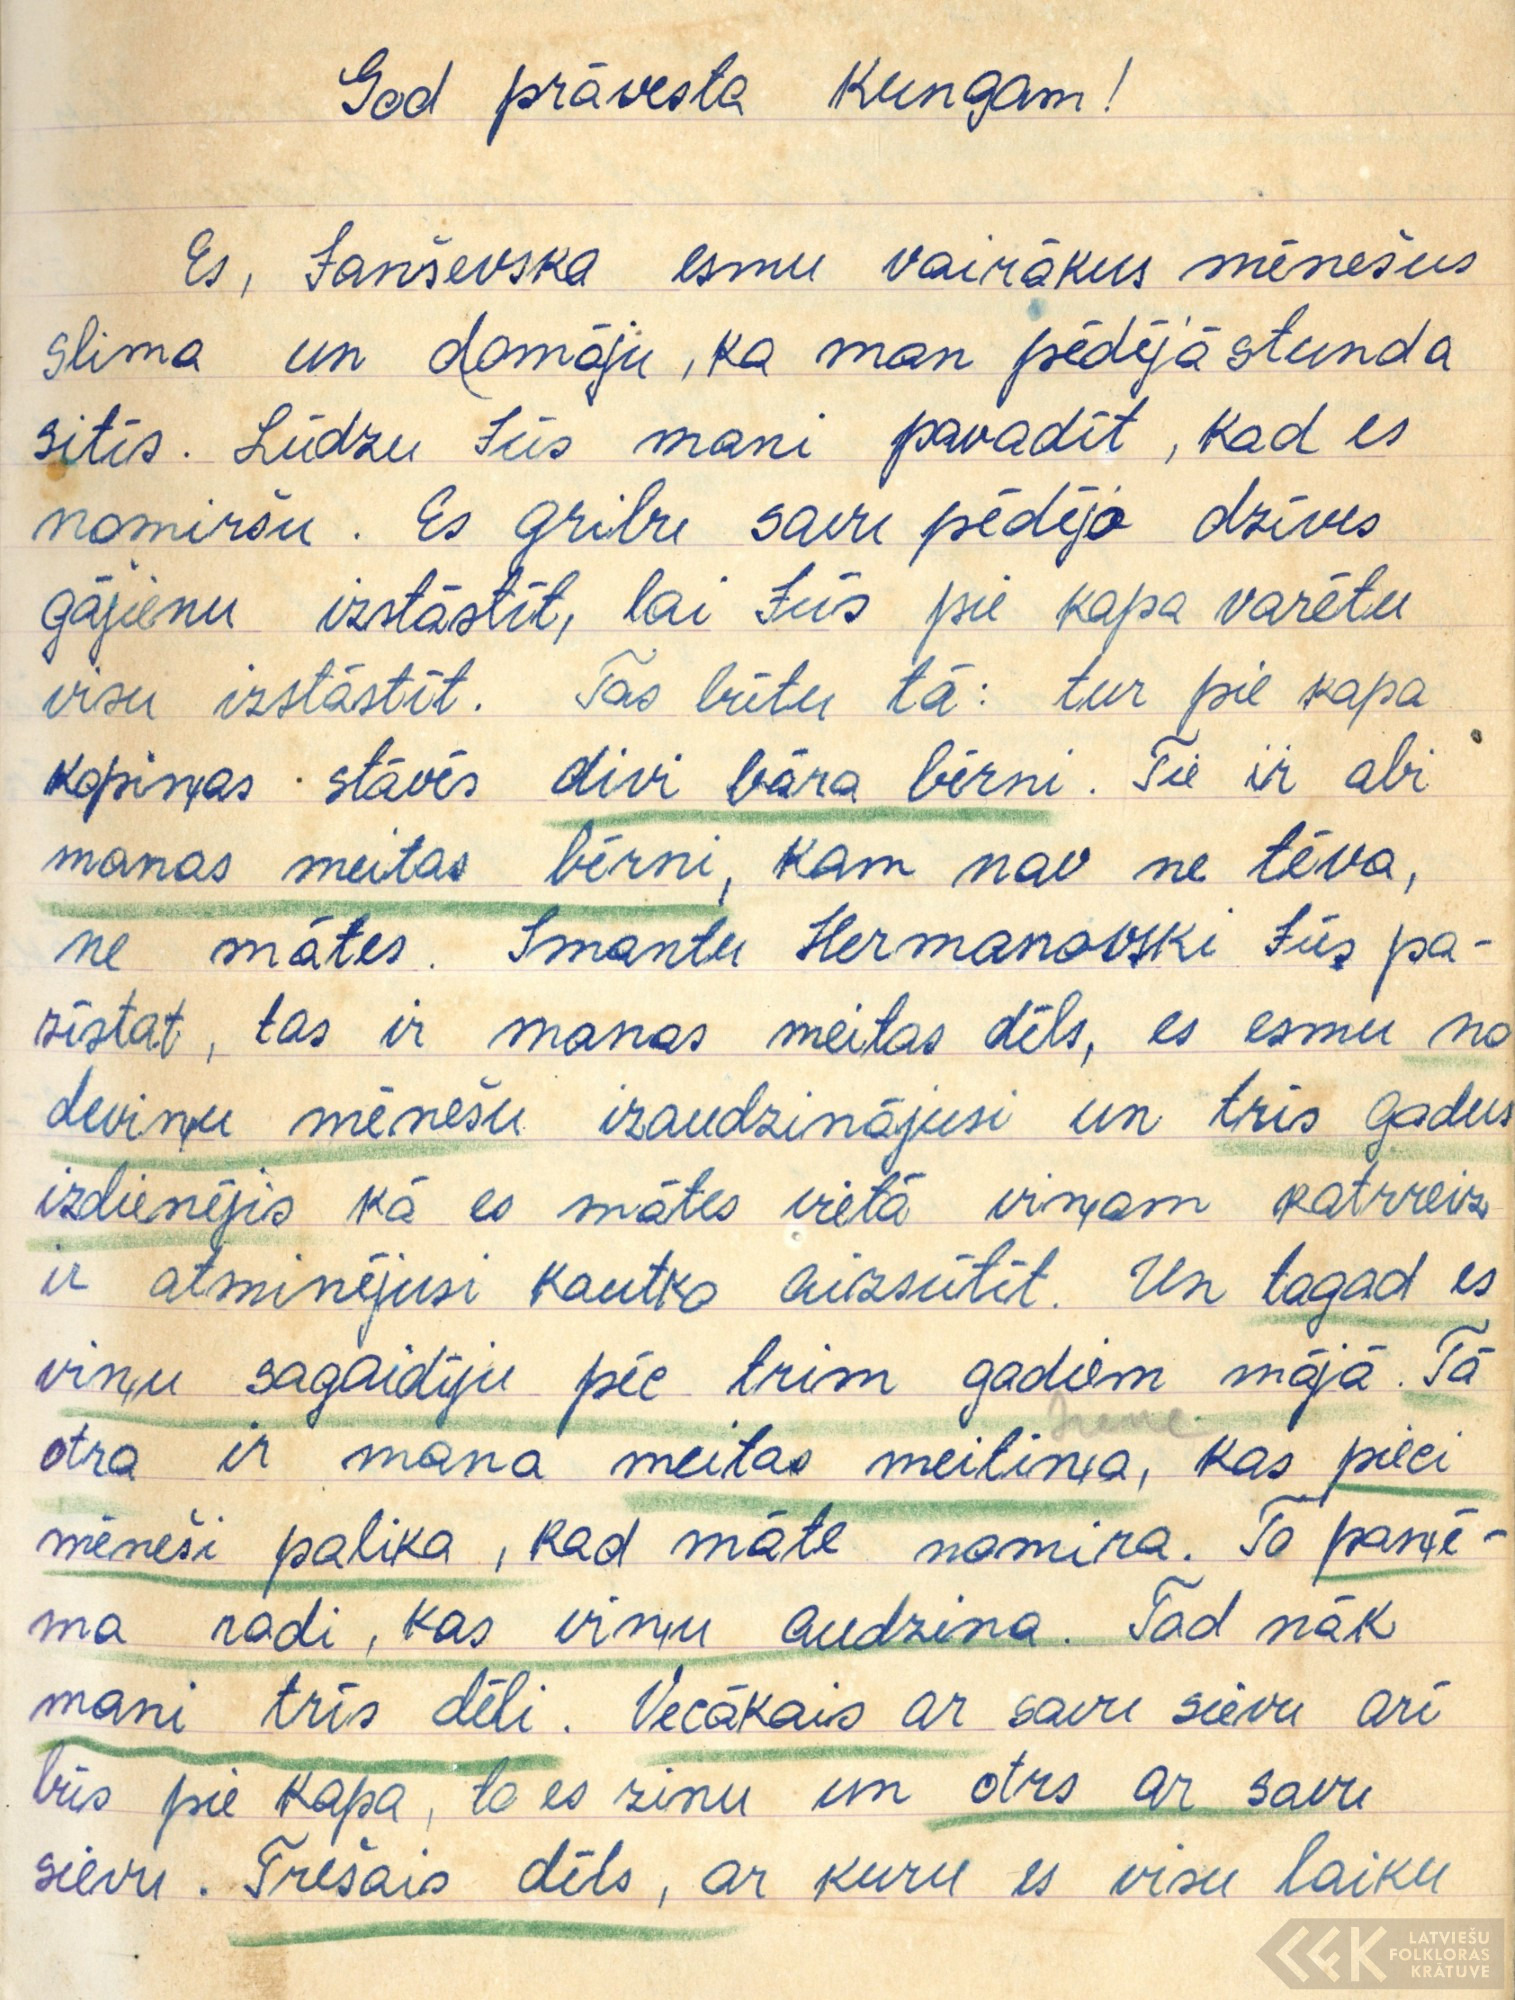 God prāvesta Kungam!
Es, Janševska esmu vairākus mēnešus
slima un domāju, ka man pēdējā stunda
sitīs. Lūdzu Jūs mani pavadīt, kad es
nomiršu. Es gribu savu pēdējo dzīves
gājienu izstāstīt, lai Jūs pie kapa varētu
visu izstāstīt. Tas būtu tā: tur pie kapa
kopiņas stāvēs divi bāra bērni. Tie ir abi
manas meitas bērni, kam nav ne tēva,
ne mātes. Imantu Hermanovski Jūs pa-
zīstat, tas ir manas meitas dēls, es esmu no
deviņu mēnešu izaudzinājusi un trīs gadus
izdienējis kā es mātes vietā viņam katrreiz
ir atminējusi kautko aizsūtīt. Un tagad es
viņu sagaidīju pēc trim gadiem mājā. Tā
Irene
otra ir mana meitas meitiņa, kas pieci
mēneši palika, kad māte nomira. To paņē-
ma radi, kas viņu audzina. Tad nāk
mani trīs dēli. Vecākais ar savu sievu arī
būs pie kapa, to es zinu un otrs ar savu
sievu. Trešais dēls, ar kuru es visu laiku
LATVIEŠU
FOLKLORAS
KRĀTUVE